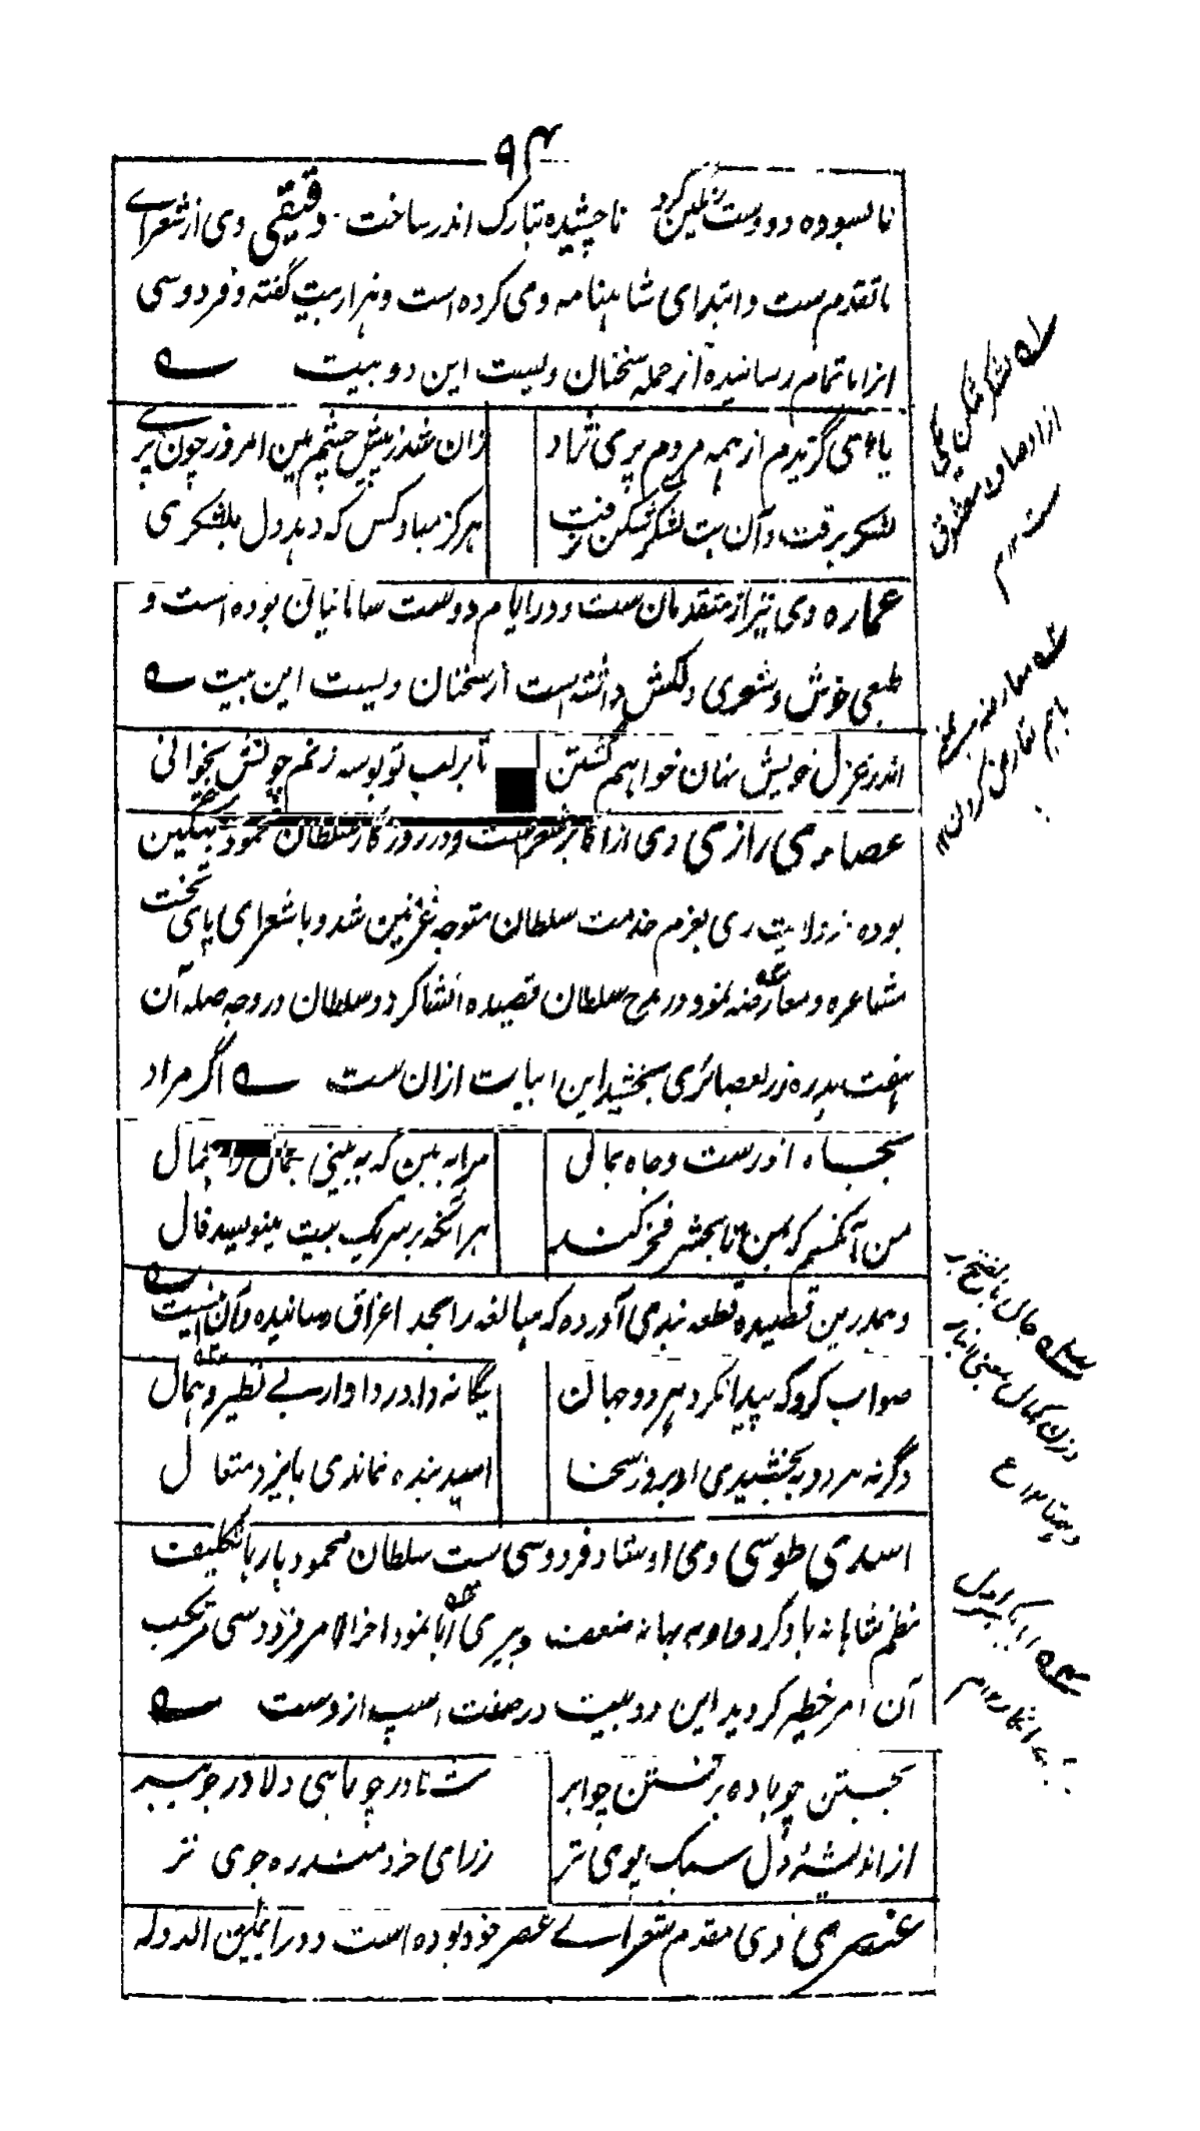 ۹۴
نابسوده دو دست رنگین کرد ناچشیده بتارک اندر ساخت دقیقی وی از شعرای
ماتقدم ست و ابتدای شاهنامه وی کرده است و هزار بیت گفته و فردوسی
انرا باتمام رسانیده از جمله سخنان ویست این دو بیت
یاری گزیدم از همه مردم پری نژاد زان شد ز پیش چشم من امروز چون پری
لشکر برفت و آن بت لشکر شکن برفت هرگز مباد کس که دهد دل بلشکری
عماره وی نیز از متقدمان ست و در ایام دوست سامانیان بوده است و
طبعی خوش و شعری دلکش داشته است از سخنان ویست این بیت
اندر غزل خویش نهان خواهم گشتن تا بر لب تو بوسه زنم چونش بخوانی
عصاری رازی وی از اکابر شعراست و در روزگار سلطان محمود سبکتگین
بوده از ولایت ری بعزم خدمت سلطان متوجه غزنین شد و با شعرای پای تخت
مشاعره و معارضه نمود و در مدح سلطان قصیده انشا کرد و سلطان در وجه صله آن
هفت بدره زر بعصائری بخشید این ابیات ازان ست اگر مراد
بجاه اندرست و جاه بمالی مرا به بین که به بینی جمال را بکمال
من آنکسم که بمن تا بحشر فخر کند هر آنکه بر سر یک بیت بنویسد قال
و همدرین قصیده قطعه بندی آورده که مبالغه را بحد اغراق رسانیده و آن اینست
صواب کرد که پیدا نکرد هر دو جهان یگانه داور دادار بی نظیر و همال
وگرنه هر دو به بخشیدی او بروز سخا امید بنده نماندی بایزد متعال
اسدی طوسی وی اوستاد فردوسی ست سلطان محمود بارها تکلیف
نظم شاهانه باو کرد و او به بهانه ضعف و پیری ابا نمود اخر الامر فردوسی مرتکب
آن امر خطیر گردید این دو بیت در صفت اسپ ازوست
بجستن چو باد و برفتن چو ابر شناور چو ماهی دلاور چو ببر
از اندیشهٔ دل سبک پوی تر ز رای خردمند ره جوی تر
عنصری وی مقدم شعرای عصر خود بوده است و در ایام یمین الدوله
لشکر شکن یکی
از ادصاف معشوق
ست ۱۲ م
معارضه
باهم تعارض کردن ۱۲